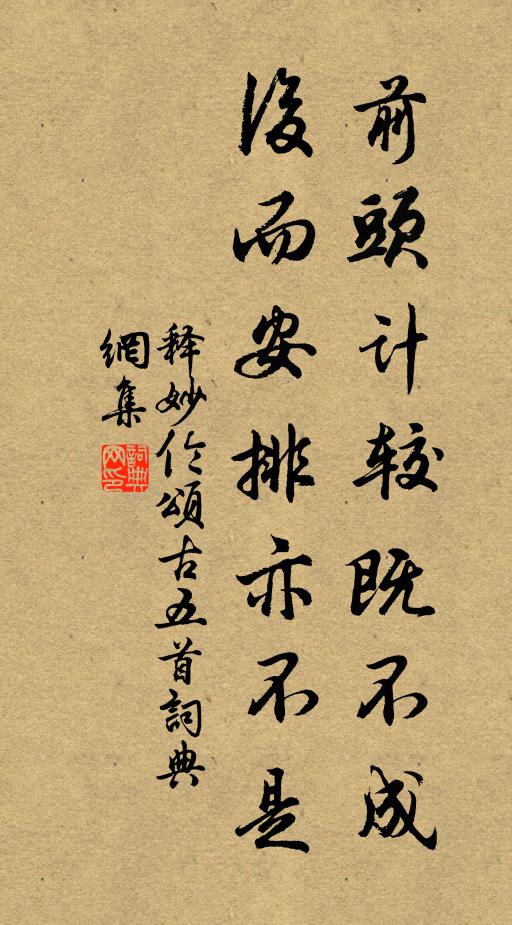 前頭计较既不成
後而安排亦不是
释妙伦頌古五首詞典
網集
詞典網印